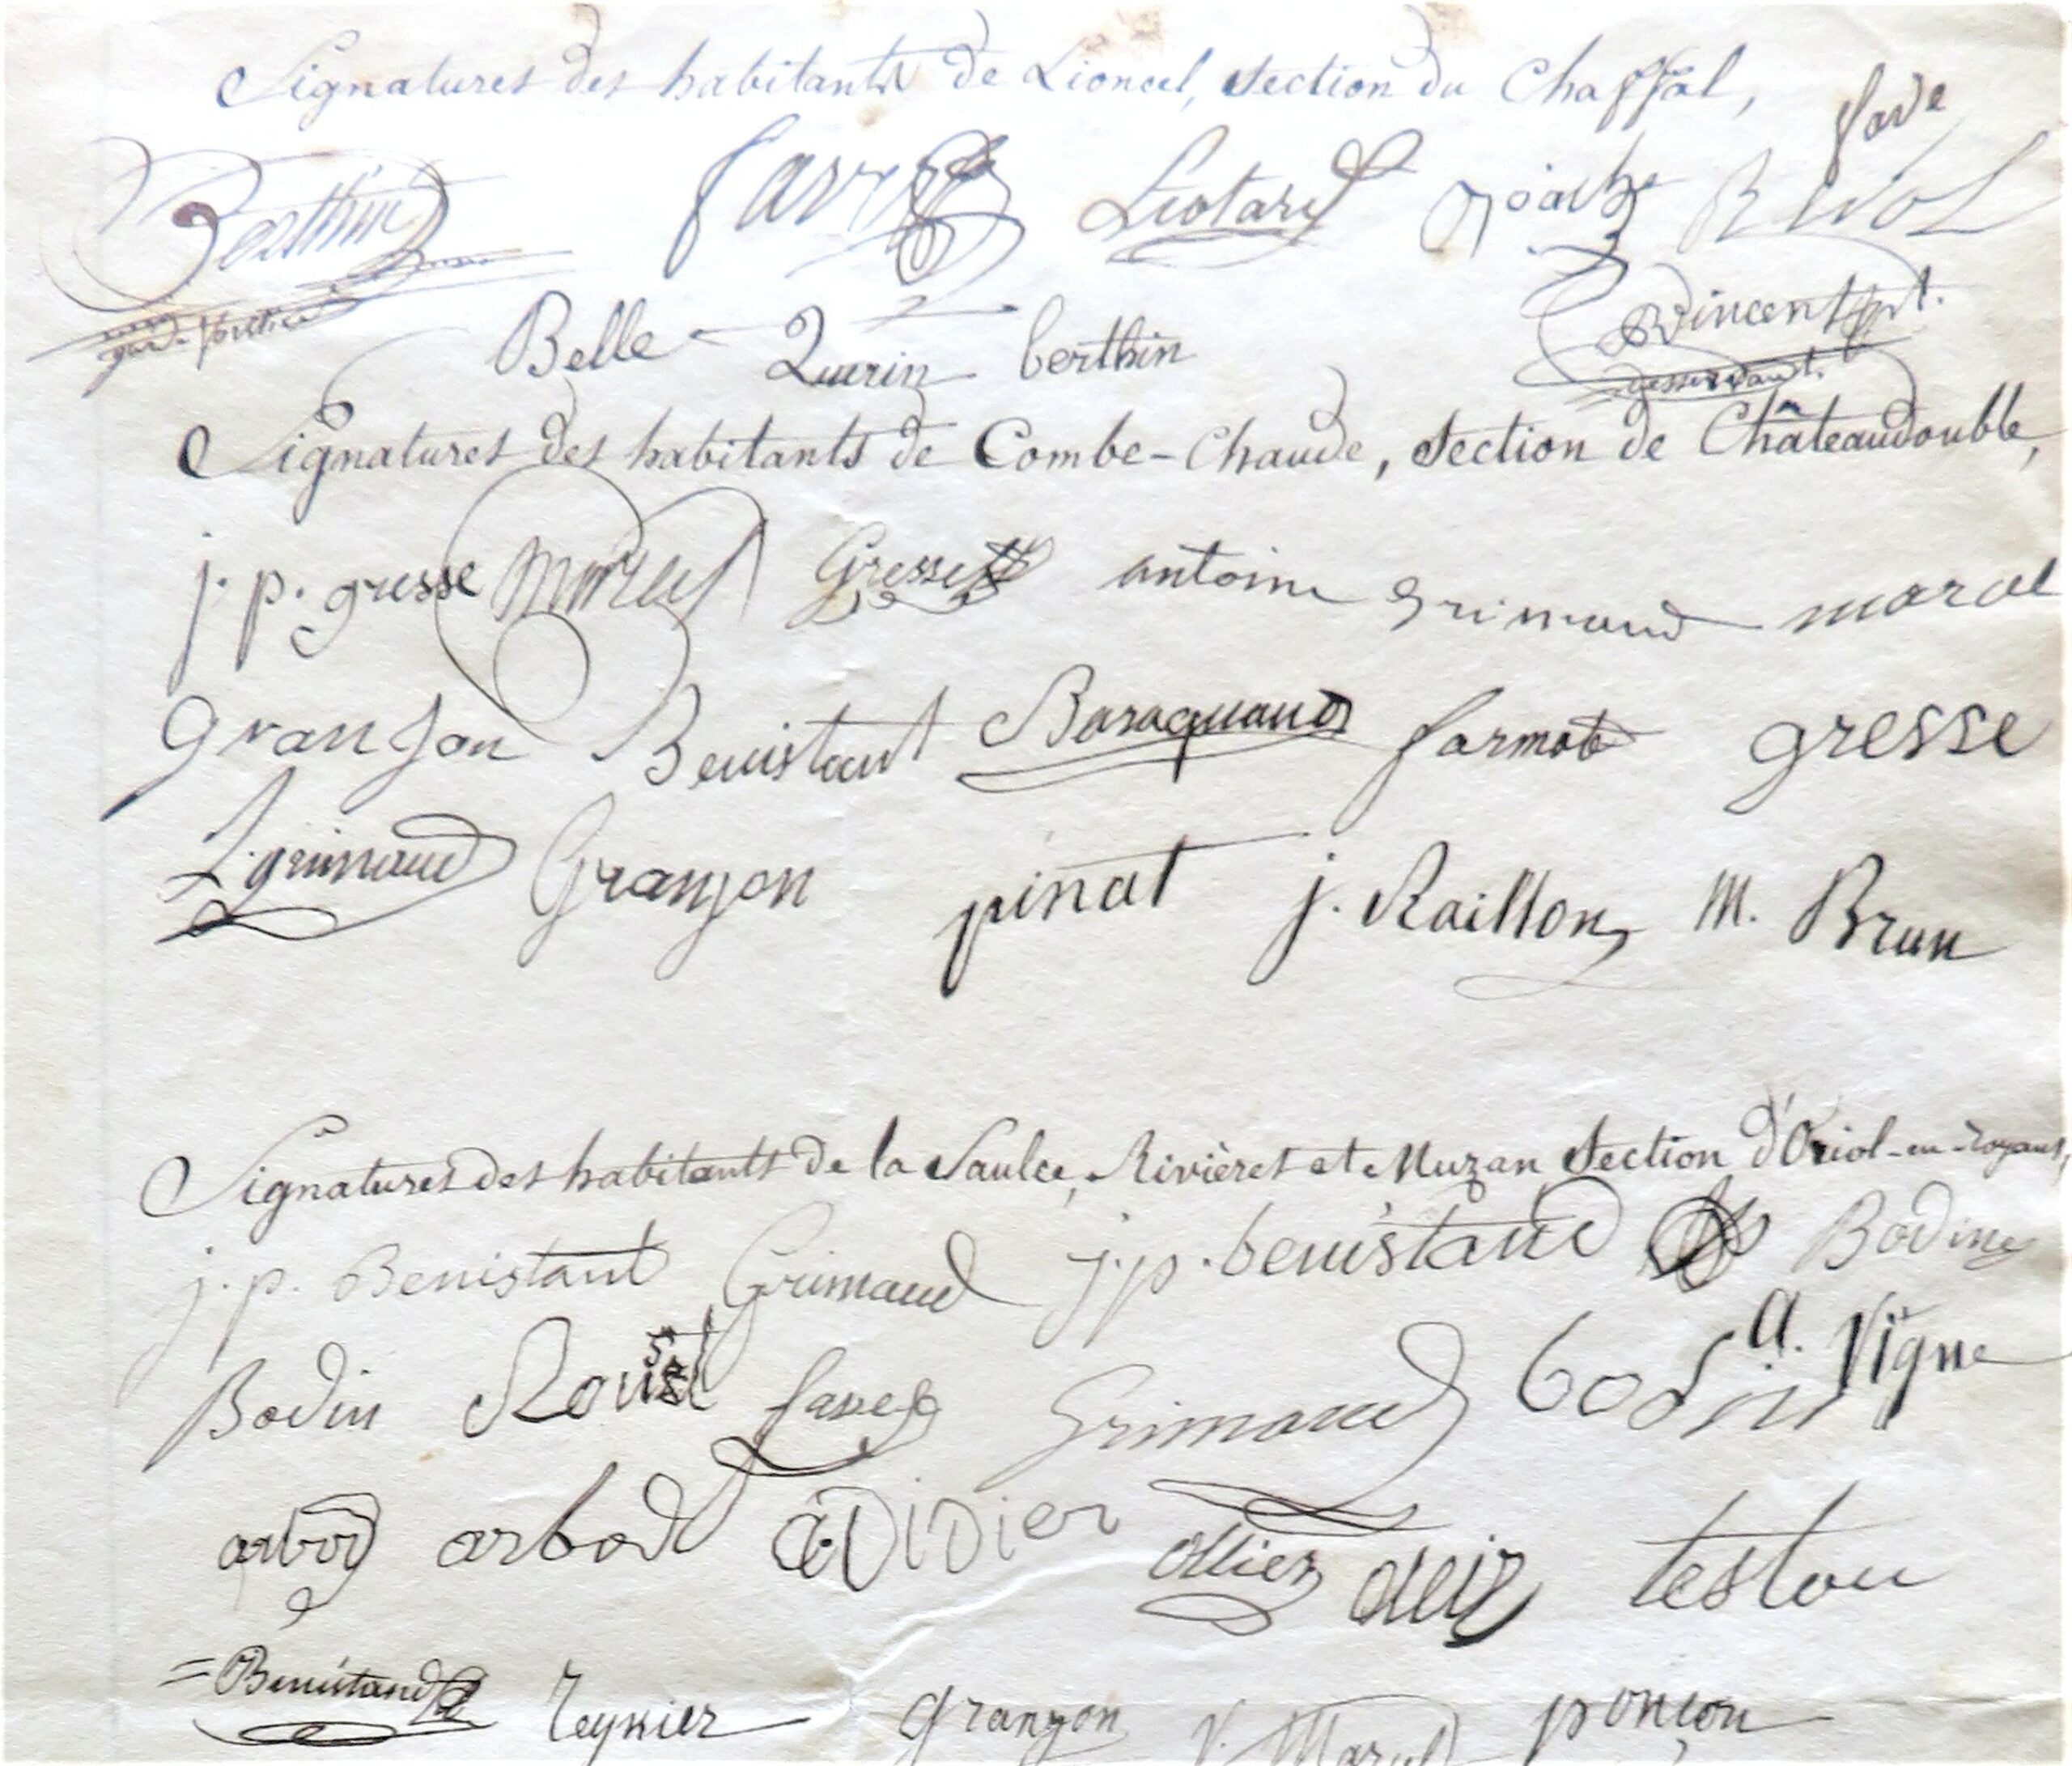 Signatures des habitants de Lioncel, Section du Chaffal,
fave
Berthin favre Liotard RivoL
Vincent prt.
garde forestier Belle Querin berthin desservant.
Signatures des habitants de Combe-Chaude, Section de Châteaudouble,
j. p. gresse Morel Gresse antoine Grimaud marcel
granjon Benistant Baraquand farmot gresse
L. grimaud Granjon pinat j. Raillon M. Brun
Signatures des habitants de la Saulce, Rivières et Muzan Section d'Oriol-en-royans,
j. p. Benistant Grimaud j. p. benistand Bodin
a. Vigne
Bodin favre Grimaud bodin
arbod arbod Didier ollier testou
= Benistand reynier granjon V. Marcel ponçon